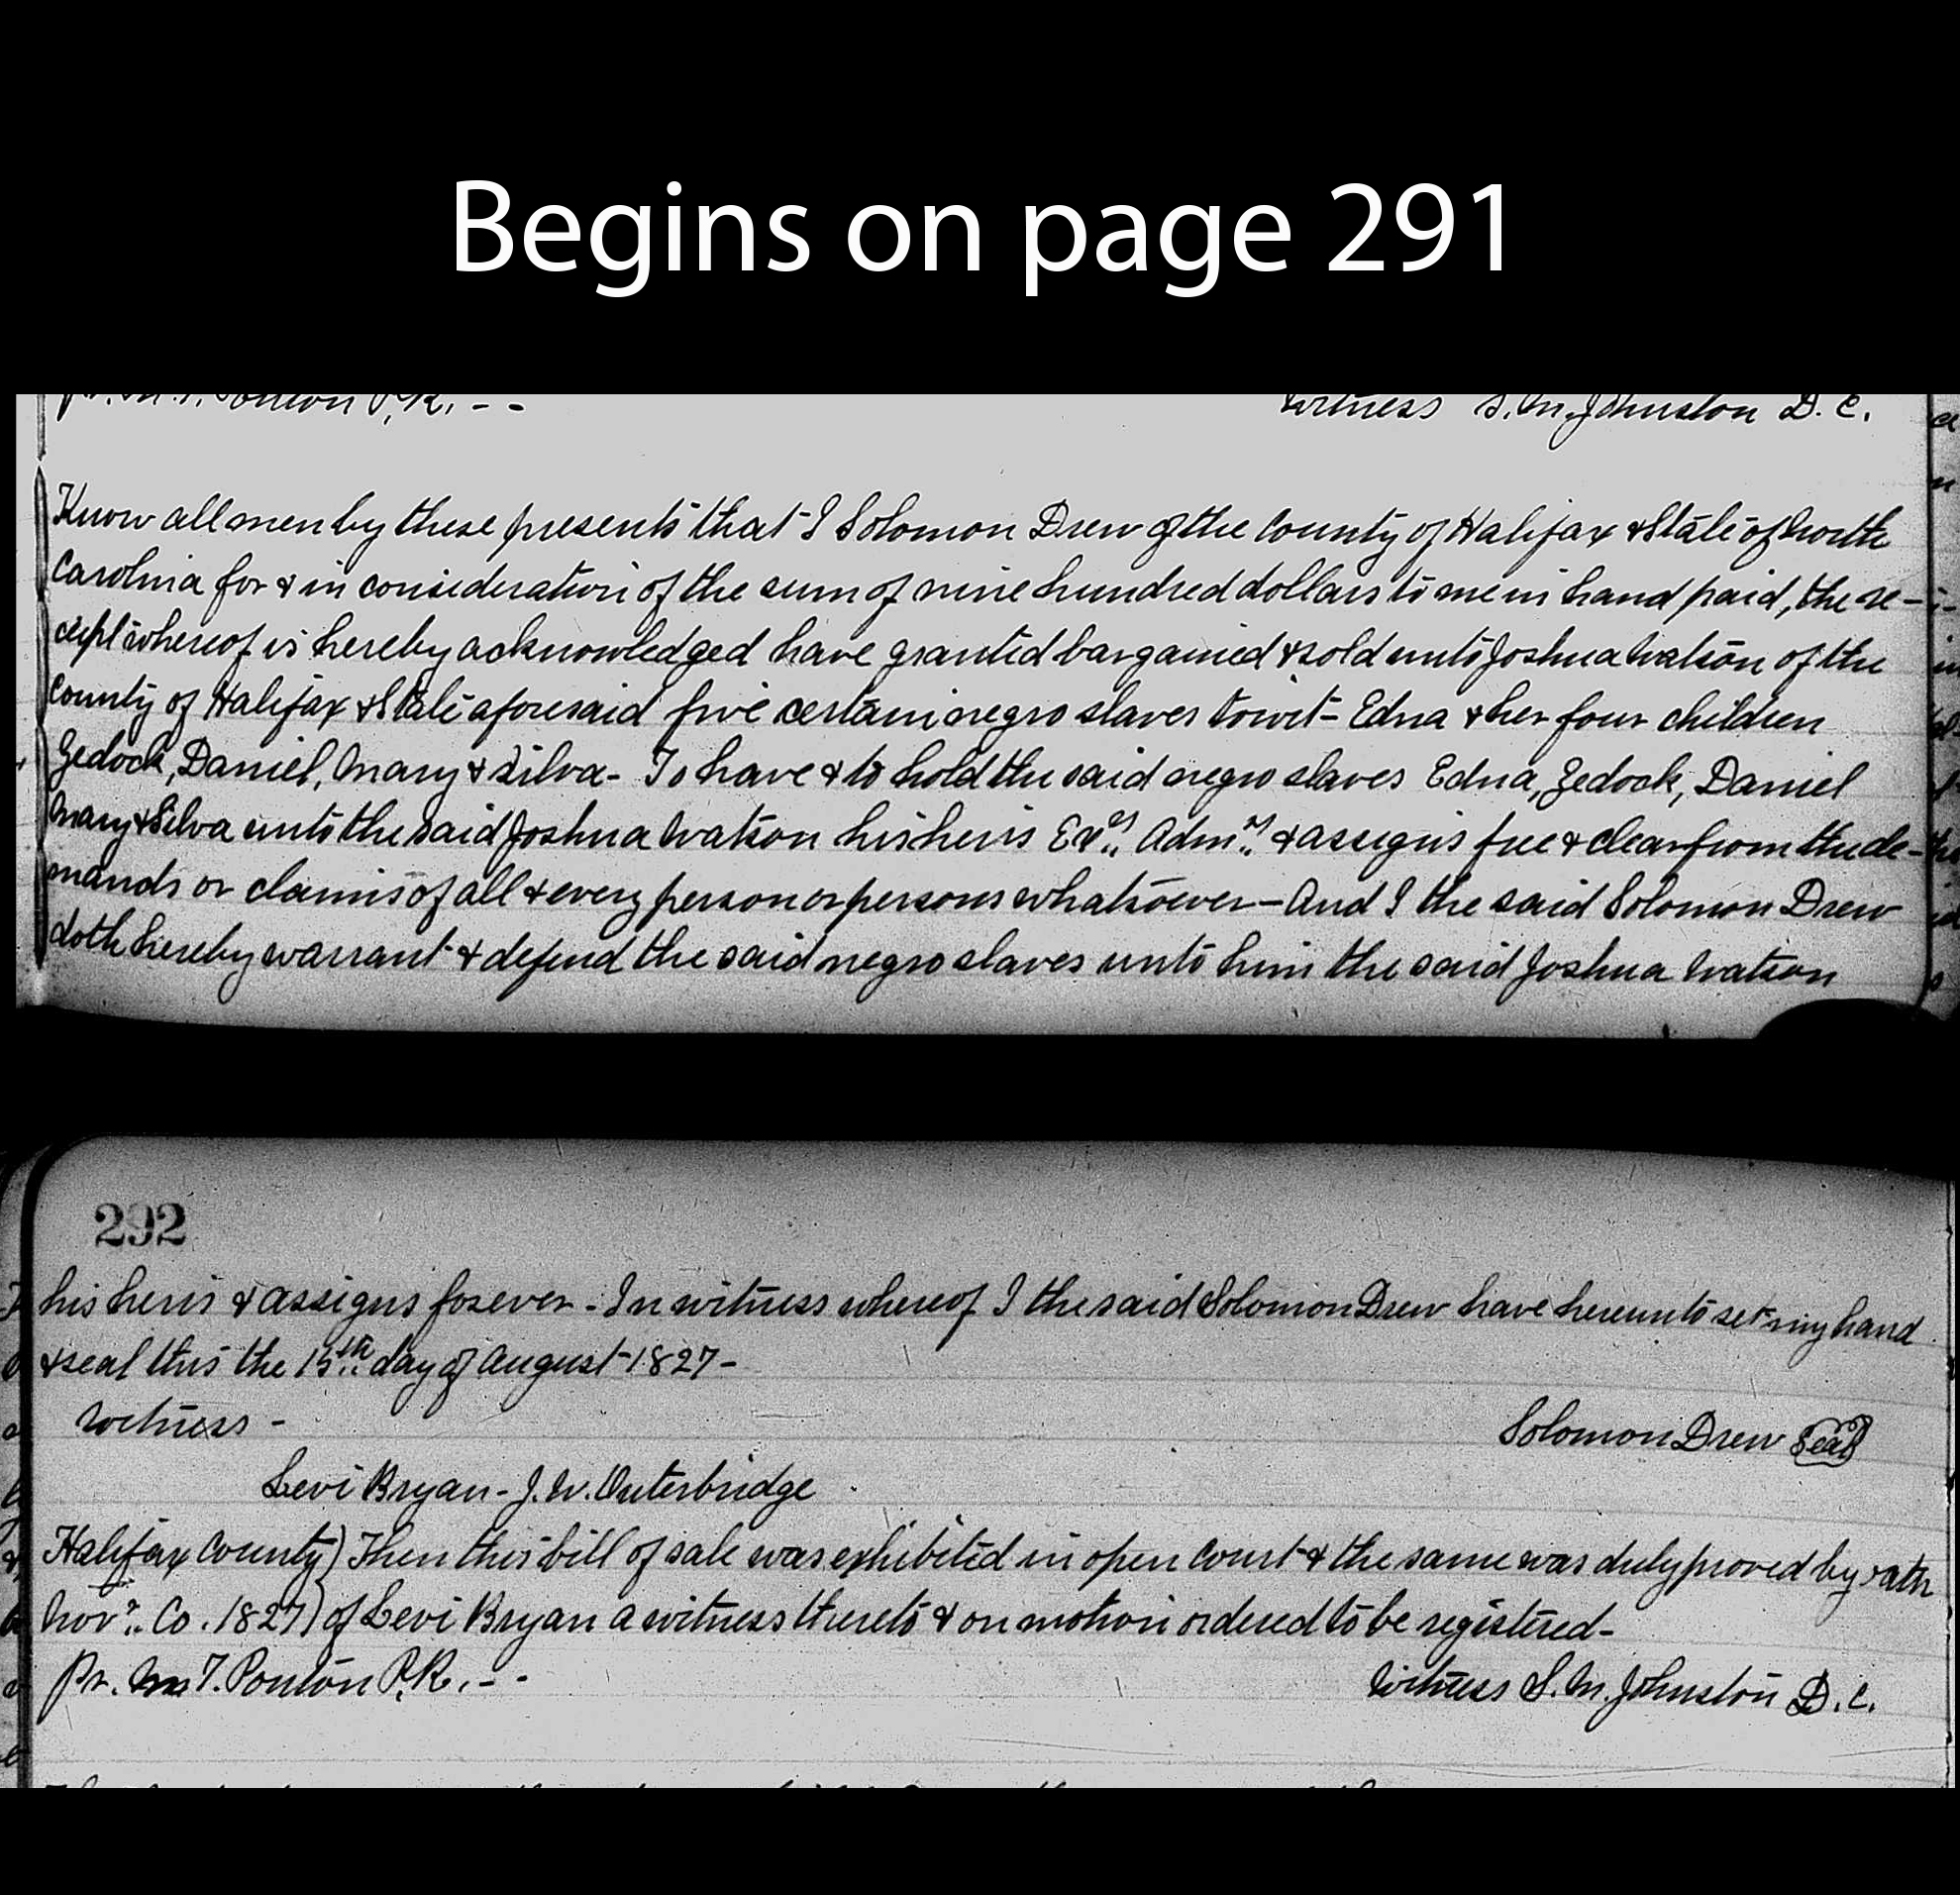 Begins on page 291
Witness S. M. Johnston D. C.
Know all men by these presents that I Solomon Drew of the County of Halifax & State of North
Carolina for & in consideration of the sum of nine hundred dollars to me in hand paid, the re-
ceipt whereof is hereby acknowledged have granted bargained & sold unto Joshua Watson of the
County of Halifax & State aforesaid five certain negro slaves towit - Edna & her four children
Zedock, Daniel, Mary & Silva - To have & to hold the said negro slaves Edna, Zedock, Daniel
Mary & Silva unto the said Joshua Watson his heirs Exrs Admrs & assigns free & clear from the de-
mands or claims of all & every person or persons whatsoever - And I the said Solomon Drew
doth hereby warrant & defend the said negro slaves unto him the said Joshua Watson
292
his heirs & assigns forever - In witness whereof I the said Solomon Drew have hereunto set my hand
& seal this the 15th day of August 1827 -
Witness -
Solomon Drew Seal
Levi Bryan - J. W. Outerbridge
Halifax County) Then this bill of sale was exhibited in open Court & the same was duly proved by oath
Novr. Co. 1827) of Levi Bryan a witness thereto & on motion ordered to be registered -
Pr. M. T. Ponton P. R. - -
Witness S. M. Johnston D. C.